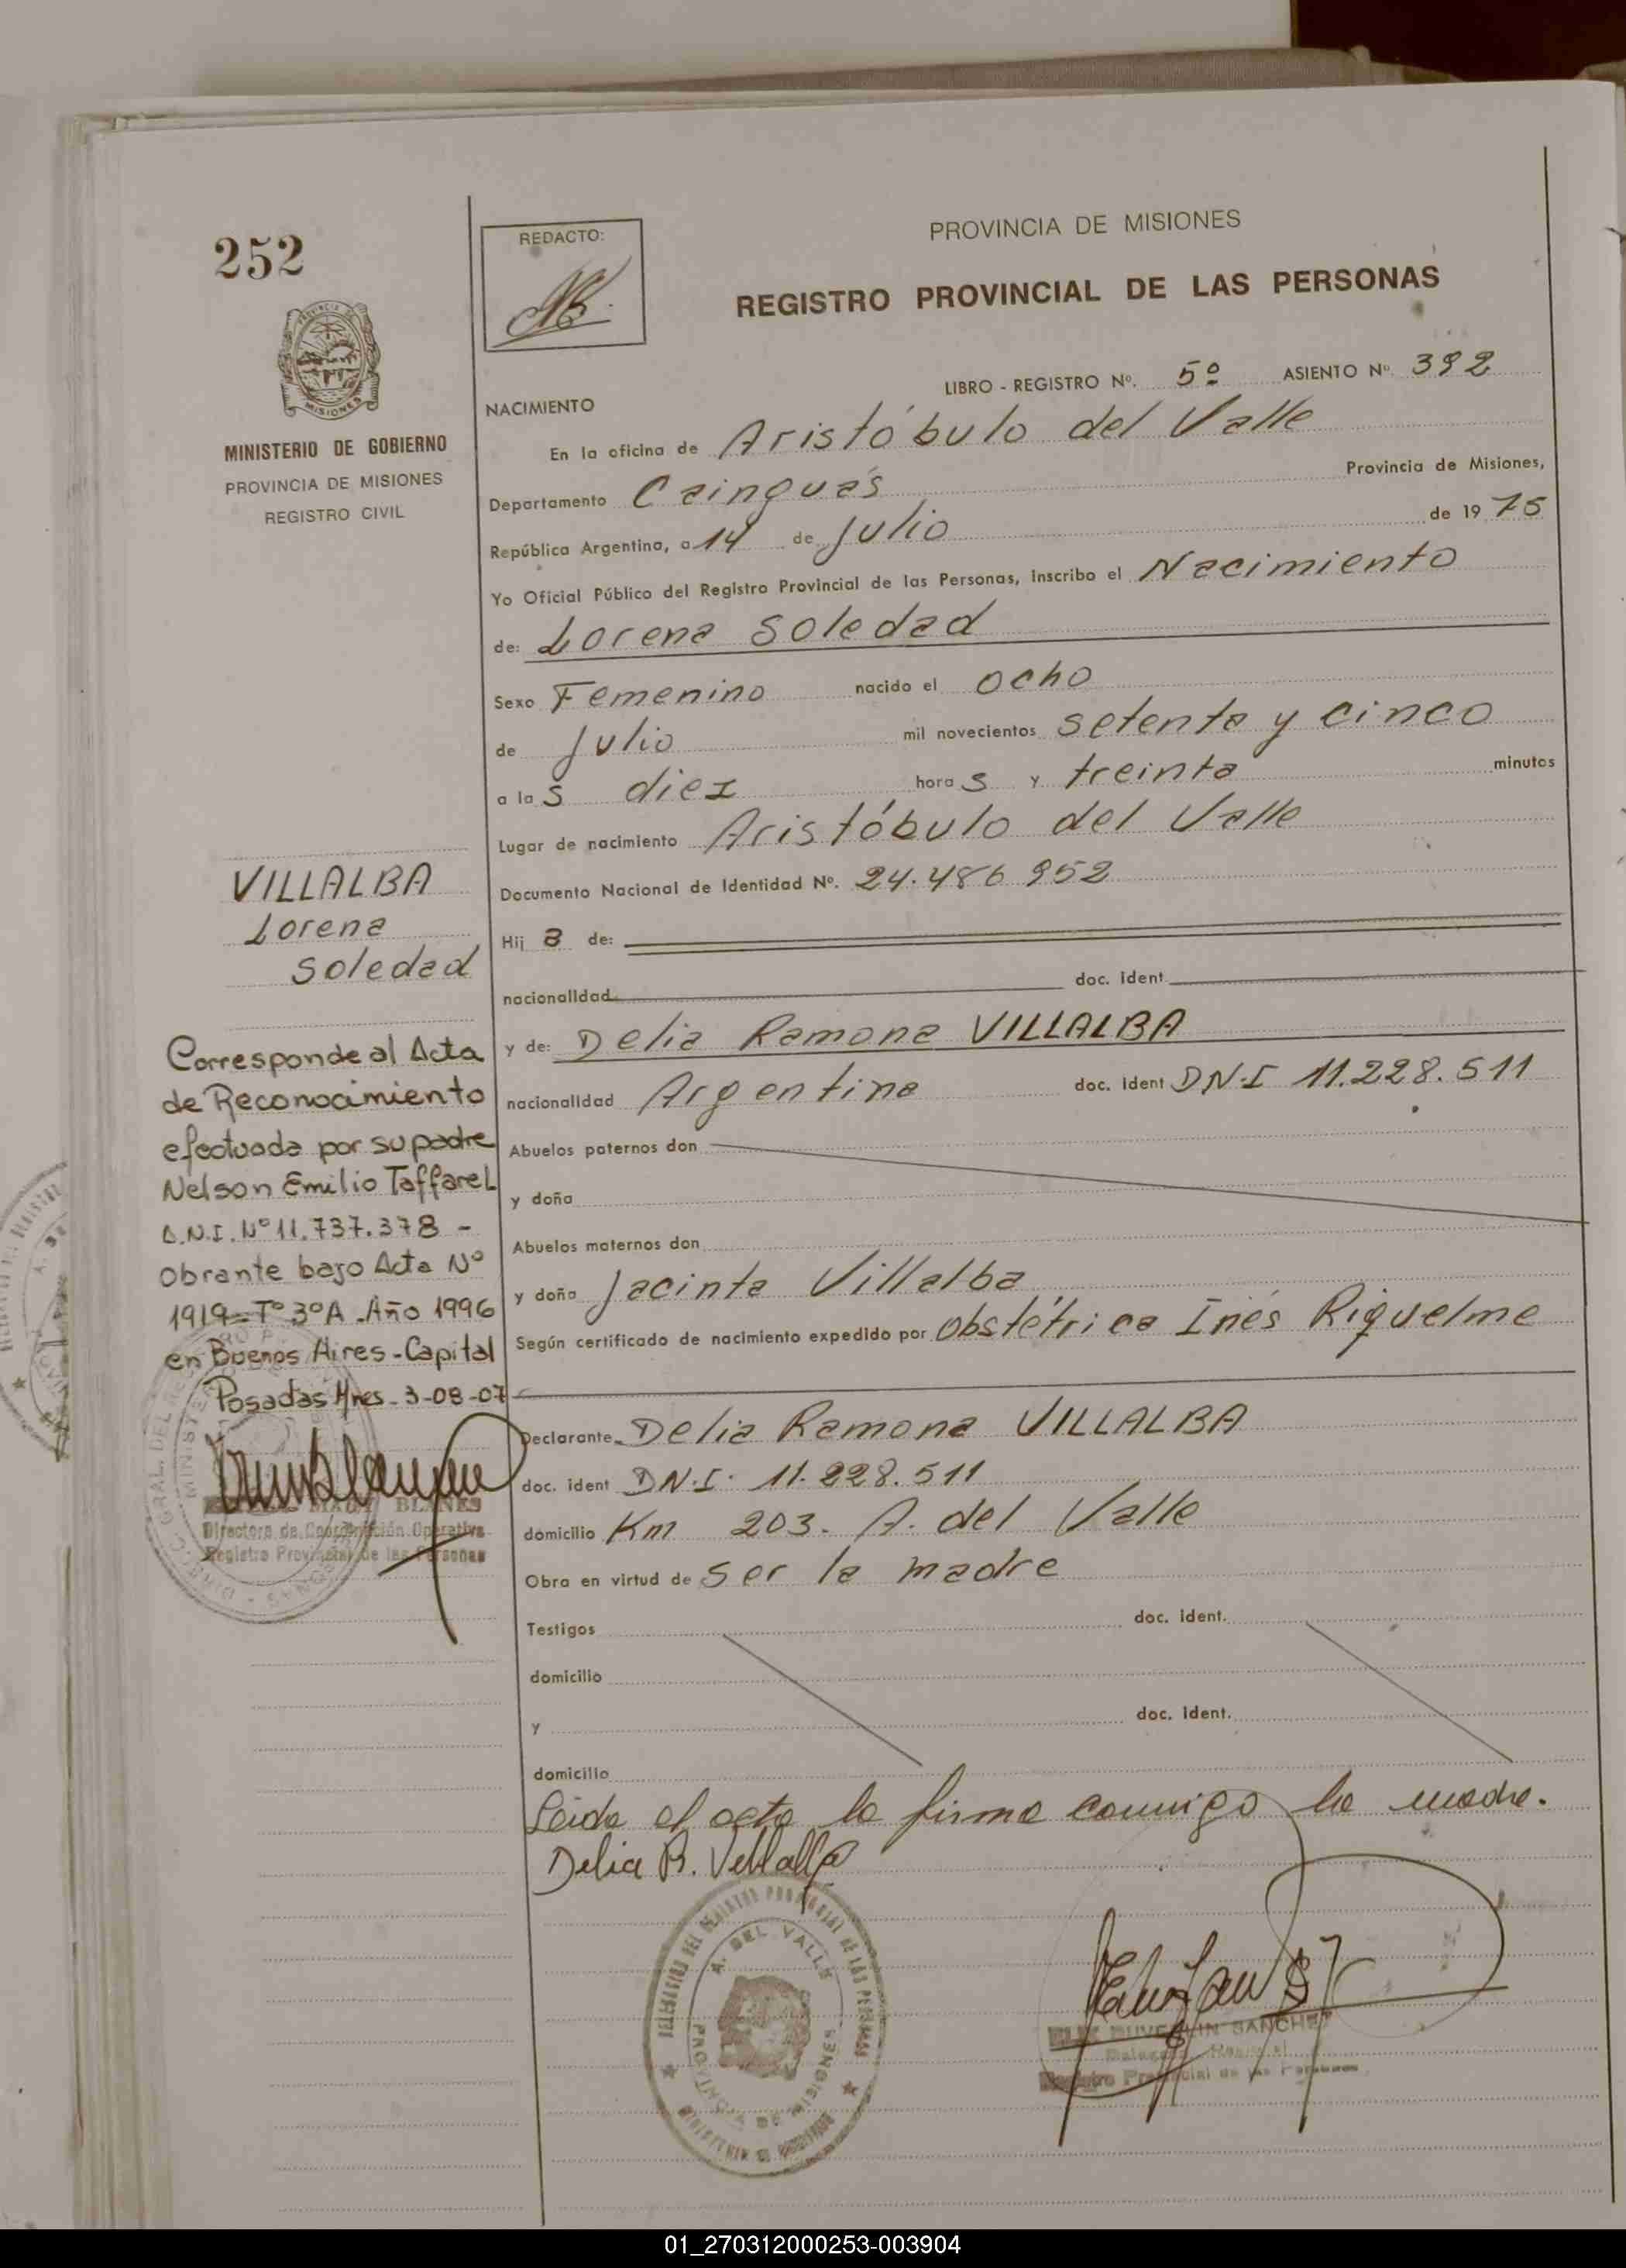 252
PROVINCIA DE MISIONES
MINISTERIO DE GOBIERNO
PROVINCIA DE MISIONES
REGISTRO CIVIL
VILLALBA
Lorena
Soledad
Corresponde al Acta
de Reconocimiento
efectuada por su padre
Nelson Emilio Taffarel
D.N.I. Nº 11.737.378 -
Obrante bajo Acta Nº
1919 - Tº 3º A . Año 1996
en Buenos Aires - Capital
Posadas Mnes. 3-08-07
BLANES
Directora de Coordinación Operativa
Registro Provincial de las Personas
REDACTO:
PROVINCIA DE MISIONES
REGISTRO PROVINCIAL DE LAS PERSONAS
LIBRO - REGISTRO Nº. 5º ASIENTO Nº. 392
NACIMIENTO
En la oficina de Aristóbulo del Valle
Departamento Cainguás Provincia de Misiones,
República Argentina, a 14 de Julio de 19 75
Yo Oficial Público del Registro Provincial de las Personas, inscribo el Nacimiento
de: Lorena Soledad
Sexo Femenino nacido el ocho
de Julio mil novecientos setenta y cinco
a las diez horas y treinta minutos
Lugar de nacimiento Aristóbulo del Valle
Documento Nacional de Identidad Nº. 24.486 952
Hija de:
nacionalidad doc. ident.
y de: Delia Ramona VILLALBA
nacionalidad Argentina doc. ident D.N.I 11.228.511
Abuelos paternos don
y doña
Abuelos maternos don
y doña Jacinta Villalba
Según certificado de nacimiento expedido por Obstétrica Inés Riquelme
Declarante Delia Ramona VILLALBA
doc. ident D.N.I. 11.228.511
domicilio Km 203. A. del Valle
Obra en virtud de ser la madre
Testigos doc. ident.
domicilio
y doc. ident.
domicilio
Leida el acta la firma conmigo la madre.
Delia R. Villalba
A. DEL VALLE
PROVINCIA DE MISIONES
SANCHEZ
Registro Provincial de las Personas
01_270312000253-003904